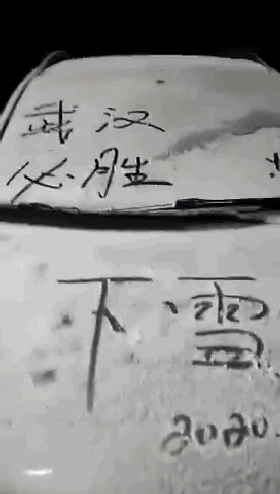 武汉
必胜!
下雪
2020.